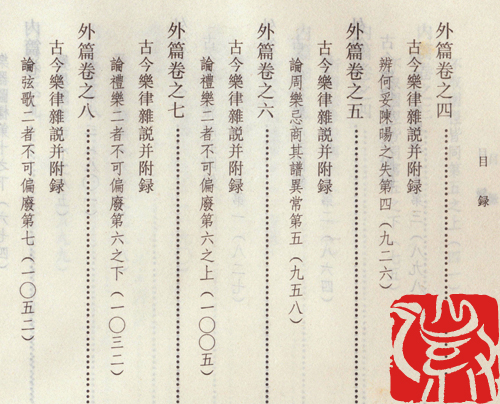 目錄
外篇卷之四
古今樂律雜説并附録
辨何妥陳暘之失第四(九二六)
外篇卷之五
古今樂律雜説并附録
論周樂忌商其譜異常第五(九五八)
外篇卷之六
古今樂律雜説并附録
論禮樂二者不可偏廢第六之上(一〇〇五)
外篇卷之七
古今樂律雜説并附録
論禮樂二者不可偏廢第六之下(一〇三二)
外篇卷之八
古今樂律雜説并附録
論弦歌二者不可偏廢第七(一〇五二)